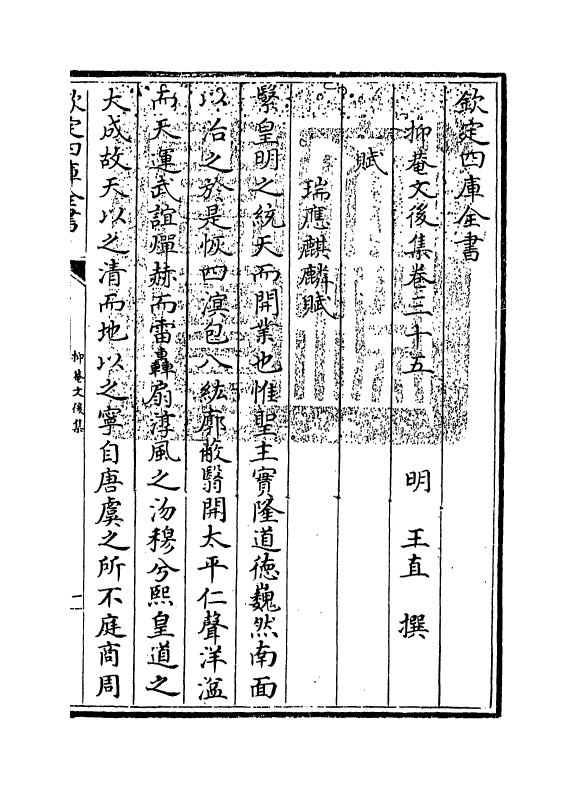 欽定四庫全書
抑菴文後集卷三十五
明 王直 撰
賦
瑞應麒麟賦
繄皇明之統天而開業也惟聖主實隆道徳巍然南面
以治之於是恢四溟包八紘廓蔽翳開太平仁聲洋溢
而天運武誼燀赫而雷轟扇淳風之沕穆兮熙皇道之
大成故天以之清而地以之寧自唐虞之所不庭商周
欽定四庫全書
抑菴文後集
一